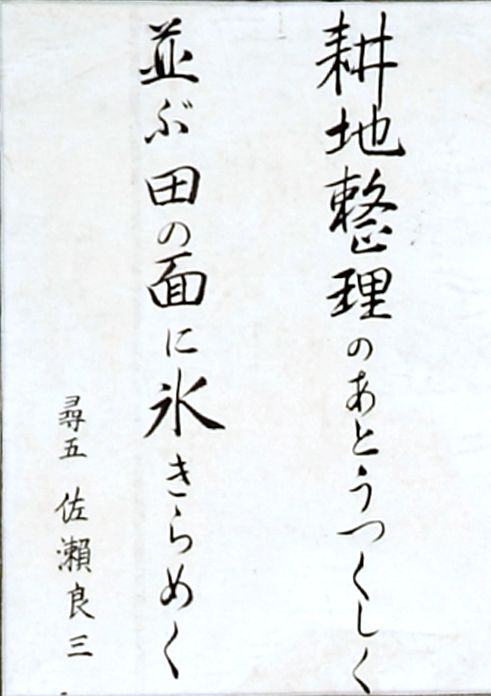 耕地整理のあとうつくしく
並ぶ田の面に氷きらめく
尋五 佐瀬良三